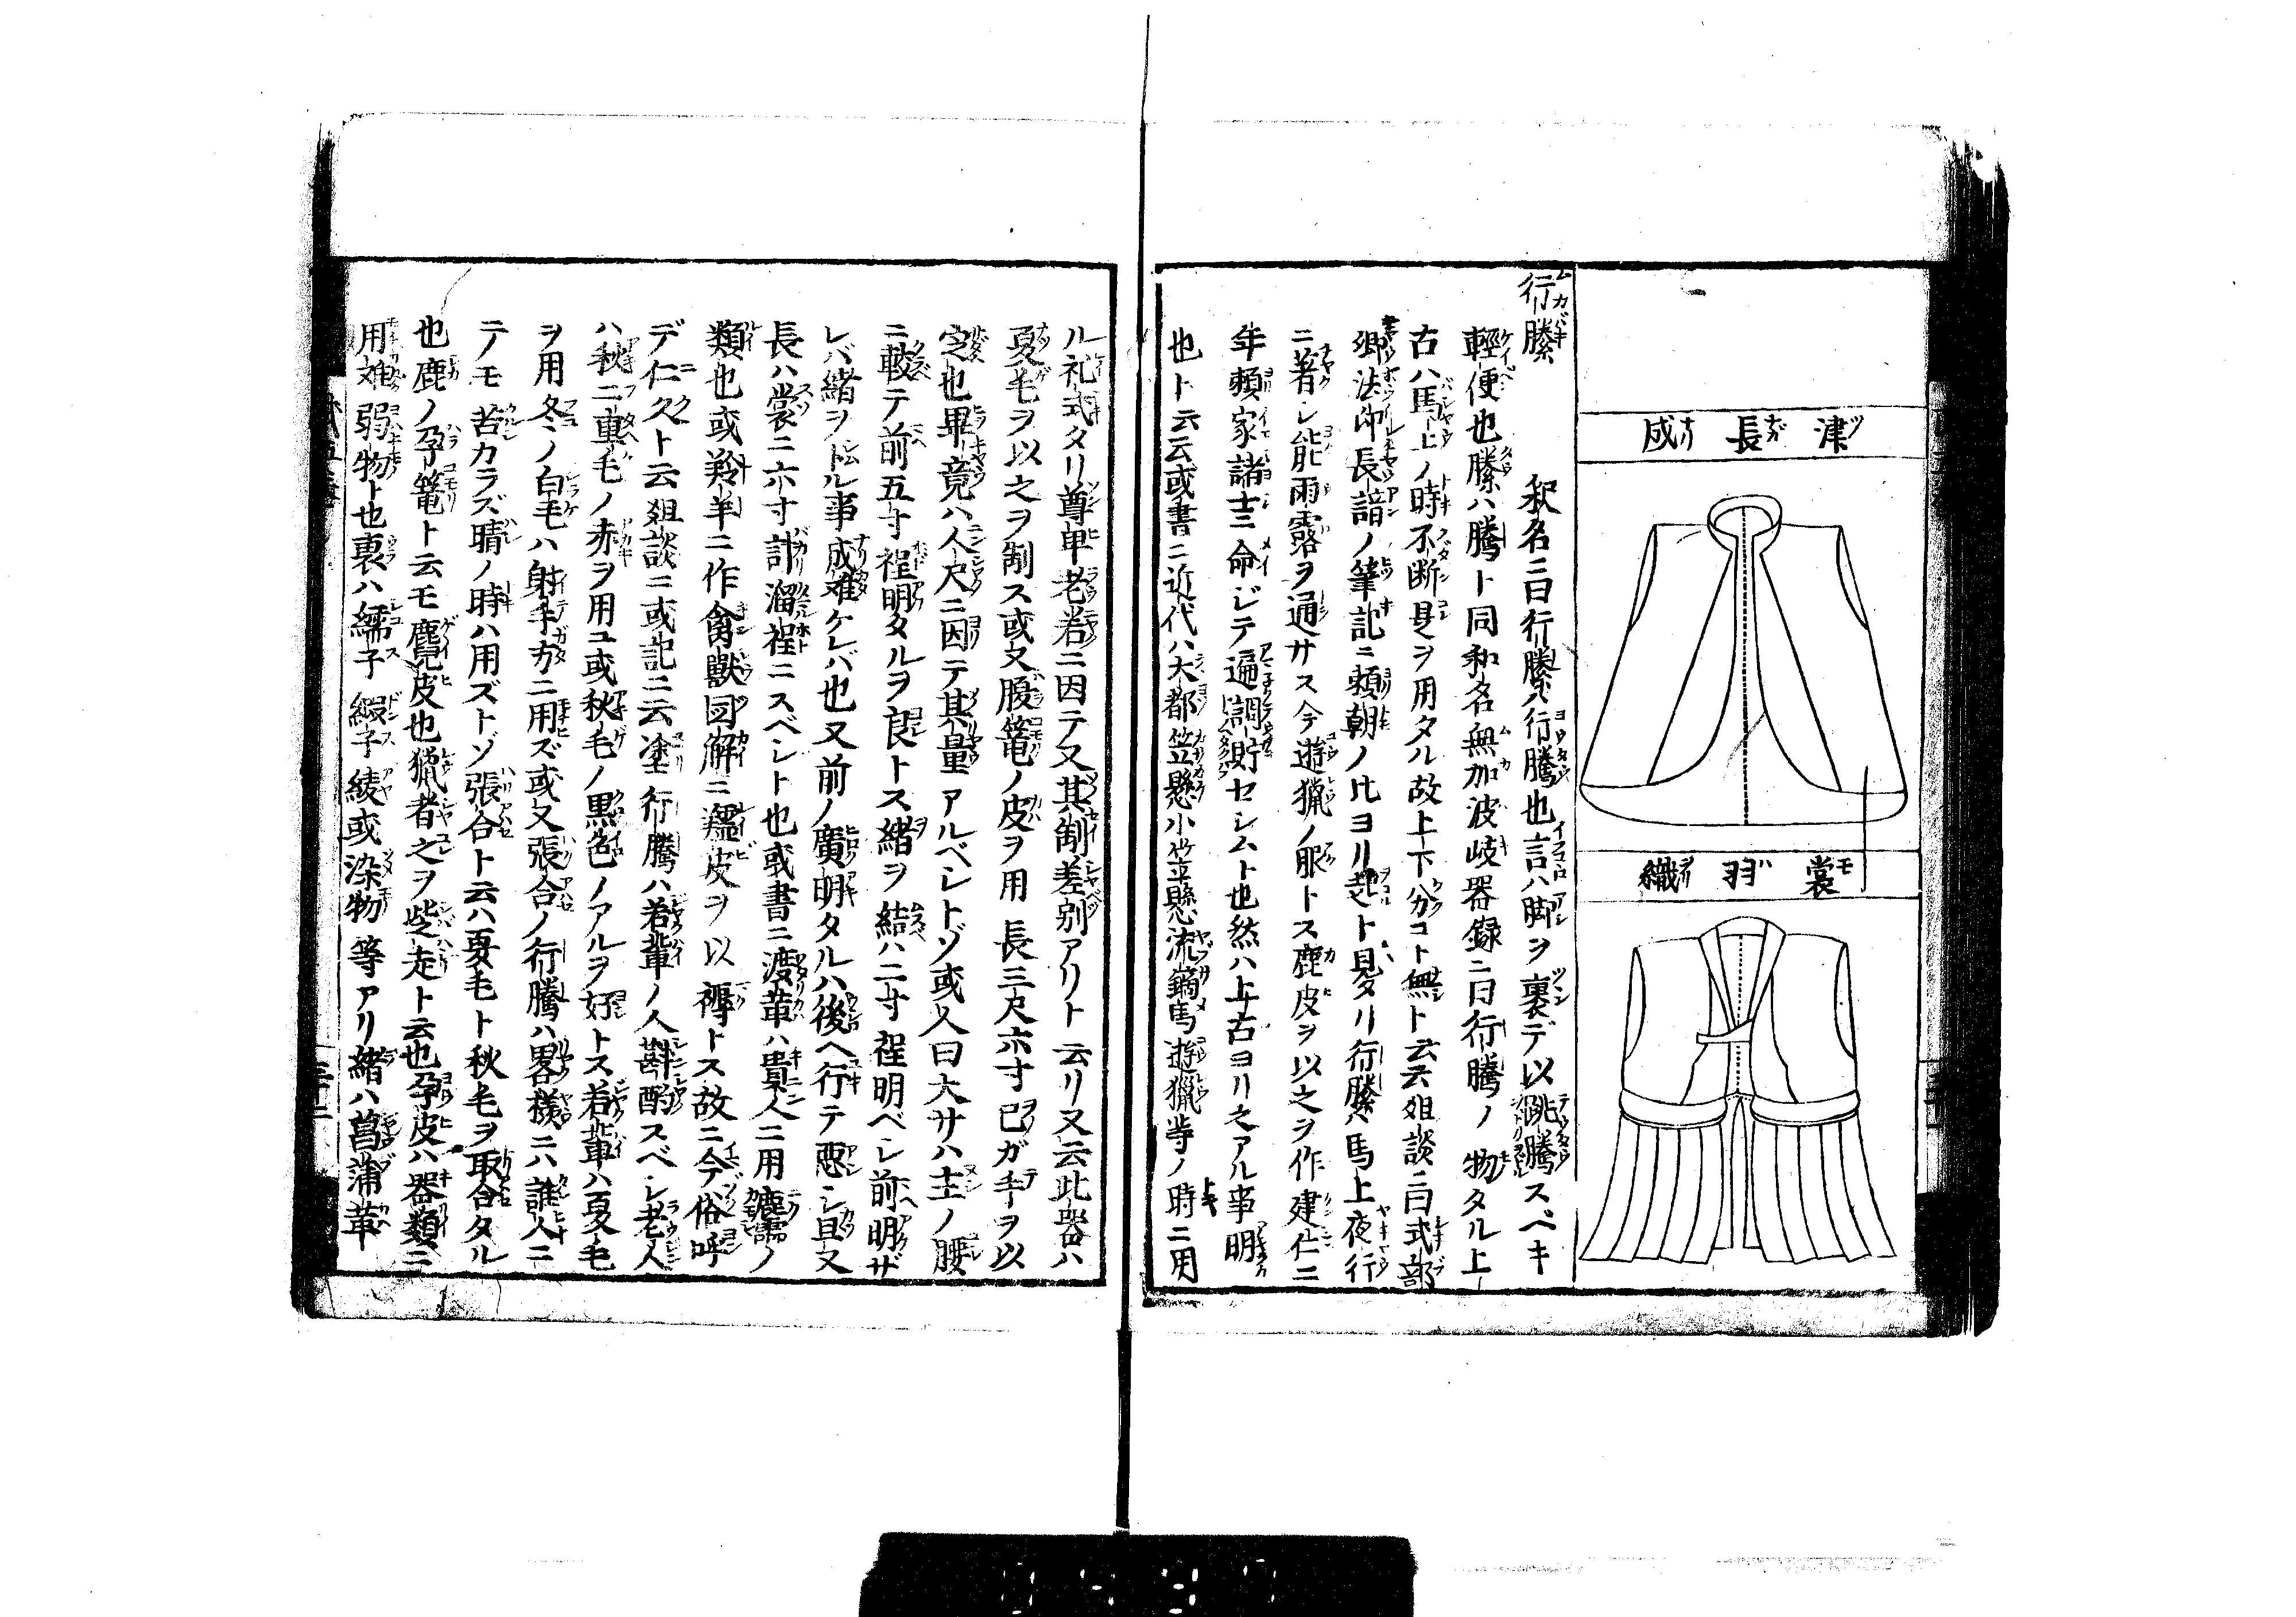 津長成
裳羽織
行縢　釈名ニ曰行縢ハ行騰也言ハ脚ヲ裏デ以跳騰スベキ
輕便也縢ハ騰ト同和名無加波岐器録ニ曰行騰ノ物タル上
古ハ馬上ノ時不断是ヲ用タル故上下分コト無ト云云爼談ニ曰式部
卿法印長諳ノ筆記ニ頼朝ノ比ヨリ起ト見タリ行縢ハ馬上夜行
ニ著シ能雨露ヲ通サス今遊猟ノ服トス鹿皮ヲ以之ヲ作建仁ニ
年頼家諸士ニ命ジテ遍調貯セシムト也然ハ上古ヨリ之アル事明
也ト云云或書ニ近代ハ大都笠懸小笠懸流鏑馬遊猟等ノ時ニ用
ル礼式タリ尊卑老若ニ因テ又其制差別アリト云リ又云此器ハ
夏毛ヲ以之ヲ制ス或又腹篭ノ皮ヲ用長三尺六寸己ガ手ヲ以
定也畢竟ハ人尺ニ因テ其量アルベシトゾ或人曰大サハ主ノ腰
ニ較テ前五寸程明タルヲ良トス緒ヲ結ハ二寸程明ベシ前明ザ
レバ緒ヲトル事成难ケレバ也又前ノ廣明タルハ後ヘ行テ悪シ且又
長ハ裳ニ六寸計溜程ニスベシト也或書ニ渡革ハ貴人ニ用ノ
類也或羚羊ニ作禽獸図解ニ皮ヲ以褥トス故ニ今俗呼
デ仁久ト云爼談ニ或記ニ云塗行騰ハ若輩ノ人斟酌スベシ老人
ハ秋二重毛ノ赤ヲ用ユ或秋毛ノ黒色ノアルヲ好トス若輩ハ夏毛
ヲ用冬ノ白毛ハ射手方ニ用ズ或又張合ノ行騰ハ畧様ニ六誰人ニ
テモ苦カラズ晴ノ時ハ用ズトゾ張合ト云ハ夏毛ト秋毛ヲ取合タル
也鹿ノ孕篭ト云モ麑皮也猟者之ヲ柴走ト云也孕皮ハ器類ニ
用难弱物ト也裏ハ繻子緞子綾或染物等アリ緒ハ菖蒲革